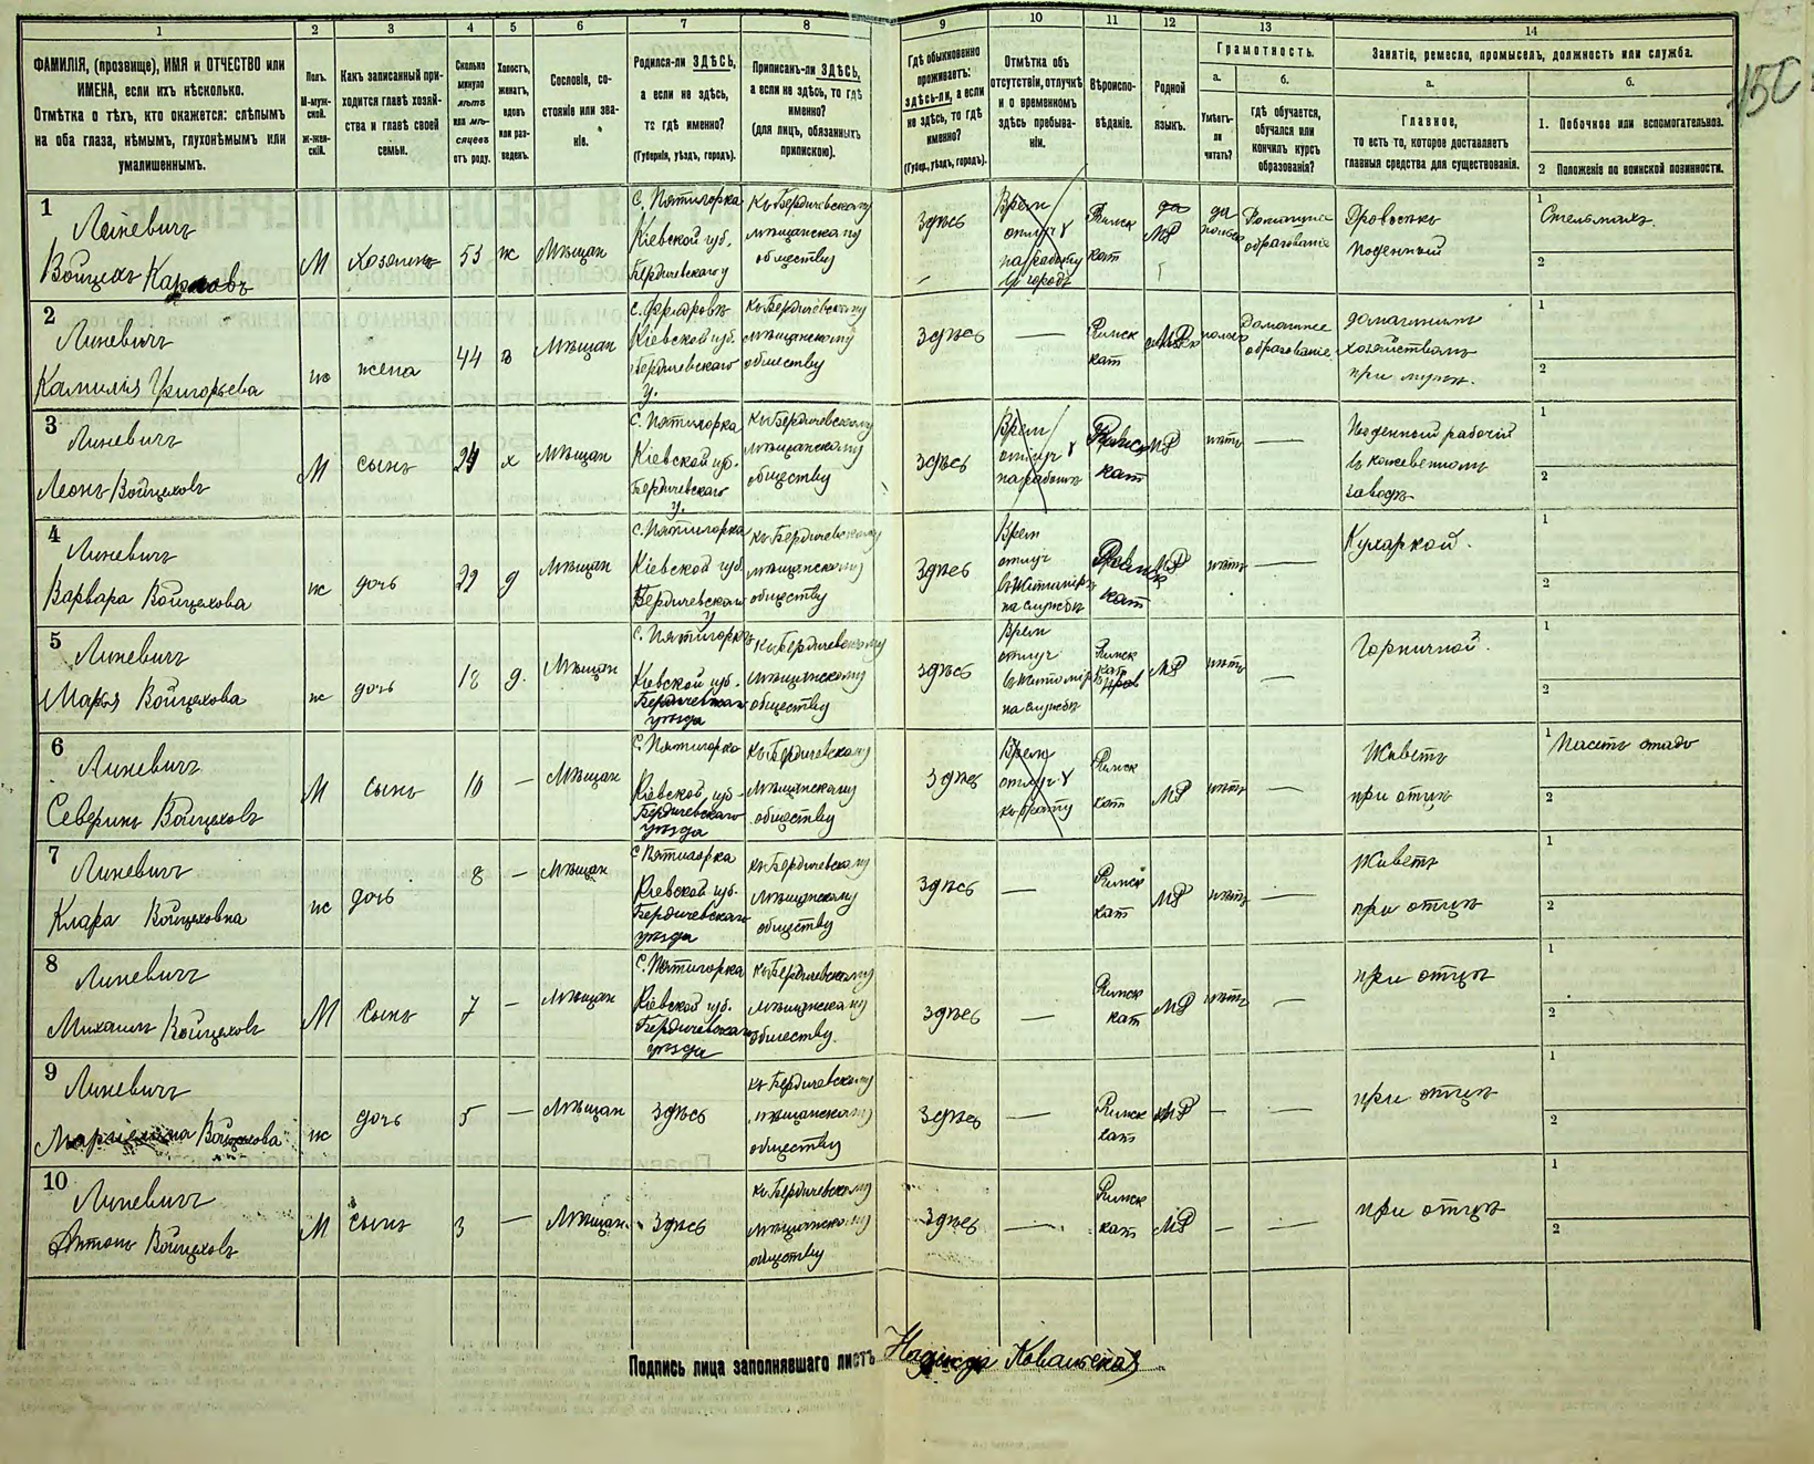 1 2 3 4 5 6 7 8 9 10 11 12 13 14
ФАМИЛІЯ, (прозвище), ИМЯ и ОТЧЕСТВО или
ИМЕНА, если ихъ нѣсколько.
Отмѣтка о тѣхъ, кто окажется: слѣпымъ
на оба глаза, нѣмымъ, глухонѣмымъ или
умалишеннымъ.
Полъ.
М-муж-
ской.
ж-жен-
скій.
Какъ записанный при-
ходится главѣ хозяй-
ства и главѣ своей
семьи.
Сколько
минуло
лѣтъ
или мѣ-
сяцевъ
отъ роду.
Холостъ,
женатъ,
вдовъ
или раз-
веденъ.
Сословіе, со-
стояніе или зва-
ніе.
Родился-ли ЗДѢСЬ,
а если не здѣсь,
то гдѣ именно?
(Губернія, уѣздъ, городъ).
Приписанъ-ли ЗДѢСЬ,
а если не здѣсь, то гдѣ
именно?
(для лицъ, обязанныхъ
припискою).
Гдѣ обыкновенно
проживаетъ:
здѣсь-ли, а если
не здѣсь, то гдѣ
именно?
(Губер., уѣздъ, городъ).
Отмѣтка объ
отсутствіи, отлучкѣ
и о временномъ
здѣсь пребыва-
ніи.
Вѣроиспо-
вѣданіе.
Родной
языкъ.
Грамотность.
а.
Умѣетъ-
ли
читать?
б.
гдѣ обучается,
обучался или
кончилъ курсъ
образованія?
Занятіе, ремесло, промыселъ, должность или служба.
а.
Главное,
то есть то, которое доставляетъ
главныя средства для существованія.
б.
1. Побочное или вспомогательное.
2 Положеніе по воинской повинности.
150
1
Линевичъ
Войцехъ Карловъ
М
Хозяинъ
53
ж
Мѣщан
С. Пятигорка
Кіевской губ.
Бердичевскаго у
Къ Бердичевскому
мѣщанскому
обществу
Здѣсь
Врем
отлуч
на работу
Римск
кат
да
МР
да
Домашнее
образованіе
Дровосѣкъ
поденный
1
Стельмахъ
2
2
Линевичъ
Камилія Григорьева
ж
жена
44
з
Мѣщан
Кіевской губ.
Бердичевскаго
у.
Къ Бердичевскому
мѣщанскому
обществу
Здѣсь
—
Римск
кат
Домашнее
образованіе
домашнимъ
хозяйствомъ
при мужѣ.
1
2
3
Линевичъ
Леонъ Войцеховъ
М
сынъ
24
х
Мѣщан
С. Пятигорка
Кіевской губ.
Бердичевскаго
у.
Къ Бердичевскому
мѣщанскому
обществу
Здѣсь
Врем
отлуч
на работѣ
Римск
кат
МР
нѣтъ
—
Поденный рабочій
въ кожевенномъ
заводѣ
1
2
4
Линевичъ
Варвара Войцехова
ж
дочь
22
д
Мѣщан
С. Пятигорка
Кіевской губ
Бердичевскаго
у
Къ Бердичевскому
мѣщанскому
обществу
Здѣсь
Врем
отлуч
въ Житомірѣ
на службѣ
кат
МР
нѣтъ
—
Кухаркой.
1
2
5
Линевичъ
Марія Войцехова
ж
дочь
18
д.
Мѣщан
С. Пятигорка
Кіевской губ.
Бердичевскаго
уѣзда
Къ Бердичевскому
мѣщанскому
обществу
здѣсь
Врем
отлуч
въ Житомірѣ
на службѣ
Римск
кат
МР
нѣтъ
—
Горничной.
1
2
6
Линевичъ
Северинъ Войцеховъ
М
сынъ
10
—
Мѣщан
С. Пятигорка
Кіевской губ
Бердичевскаго
уѣзда
Къ Бердичевскому
мѣщанскому
обществу
Здѣсь
Врем
отлуч
къ брату
Римск
кат
МР
нѣтъ
—
Живетъ
при отцѣ
1
Пасетъ стадо
2
7
Линевичъ
Клара Войцеховна
ж
дочь
8
—
Мѣщан
С Пятигорка
Кіевской губ.
Бердичевскаго
уѣзда
Къ Бердичевскому
мѣщанскому
обществу
Здѣсь
—
Римск
кат
МР
нѣтъ
—
Живетъ
при отцѣ
1
2
8
Линевичъ
Михаилъ Войцеховъ
М
Сынъ
7
—
Мѣщан
С. Пятигорка
Кіевской губ.
Бердичевскаго
уѣзда
Къ Бердичевскому
мѣщанскому
обществу.
Здѣсь
—
Римск
кат
МР
нѣтъ
—
при отцѣ
1
2
9
Линевичъ
Войцехова
ж
дочь
5
—
Мѣщан
Здѣсь
Къ Бердичевскому
мѣщанскому
обществу
Здѣсь
—
Римск
кат
МР
—
—
при отцѣ
1
2
10
Линевичъ
Антонъ Войцеховъ
М
Сынъ
3
—
Мѣщан
Здѣсь
Къ Бердичевскому
мѣщанскому
обществу
Здѣсь
—
Римск
кат
МР
—
—
при отцѣ
1
2
Подпись лица заполнявшаго листъ Надежда Ковальская